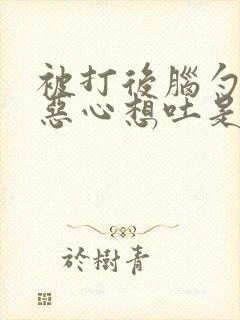 被打後腦勺
惡心想吐是
於樹青